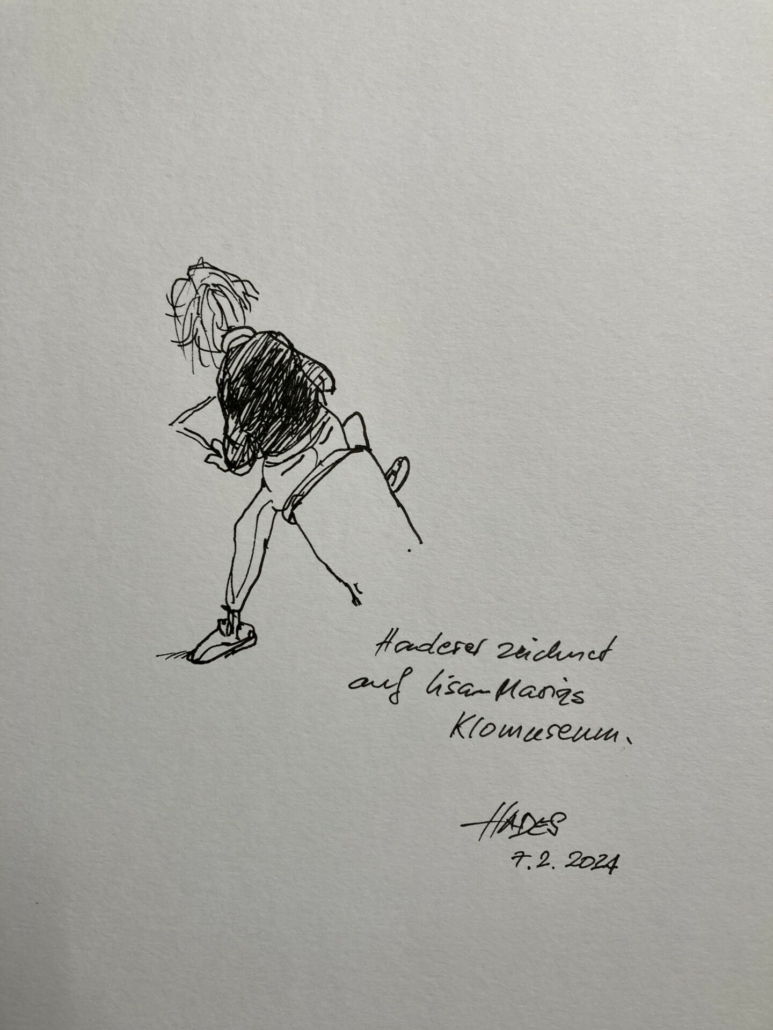 Haderer zeichnet
auf Lisa-Marias
Klomuseum.
HADES
7.2.2024